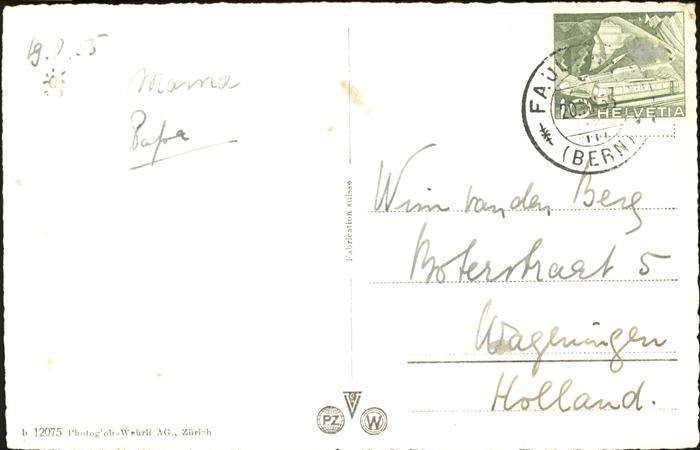 Mama
Papa
HELVETIA
(BERN)
Fabrication suisse
Wim van den Berg
Boterstraat 5
Wageningen
Holland.
PZ
W
b 12075 Photoglob-Wehrli AG., Zürich